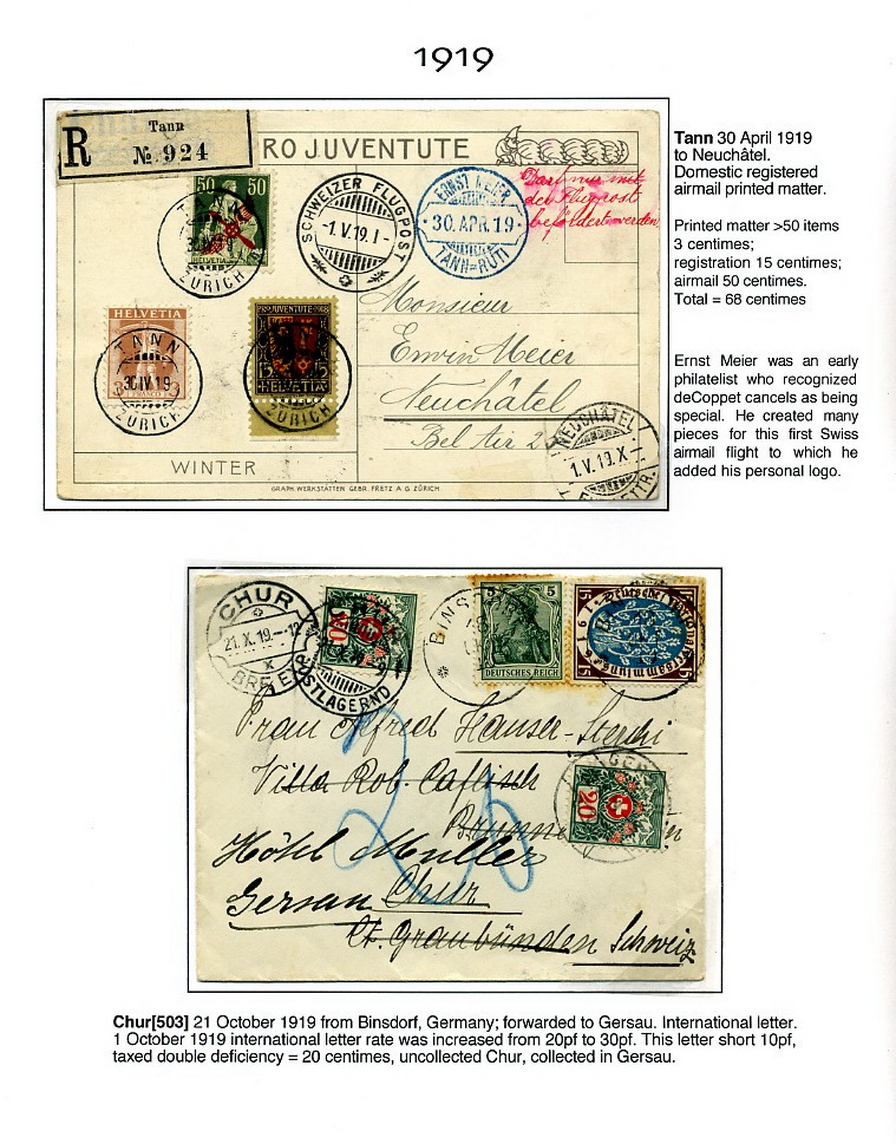 1919
R
Tann
No. 924
RO JUVENTUTE
Darf nur mit
der Flugpost
befördert werden
50 50
HELVETIA
TANN
30.IV.19
ZÜRICH
SCHWEIZER FLUGPOST
-1.V.19.I-
ERNST MEIER
·30.APR.19·
TANN=RÜTI
HELVETIA
3 3
FRANCO
TANN
30.IV.19
ZÜRICH
PRO JUVENTUTE 1918
15 15
HELVETIA
ZÜRICH
Monsieur
Erwin Meier
Neuchâtel
Bel Air 2
NEUCHÂTEL
1.V.19.X-
WINTER
GRAPH. WERKSTÄTTEN GEBR. FRETZ A.G. ZÜRICH.
Tann 30 April 1919
to Neuchâtel.
Domestic registered
airmail printed matter.
Printed matter >50 items
3 centimes;
registration 15 centimes;
airmail 50 centimes.
Total = 68 centimes
Ernst Meier was an early
philatelist who recognized
deCoppet cancels as being
special. He created many
pieces for this first Swiss
airmail flight to which he
added his personal logo.
CHUR
21.X.19.-12
X
BRIEF
20
POSTLAGERND
BINSDORF
5
DEUTSCHES REICH
1919 Deutsche Nationalversammlung
15 15
Frau Alfred Hauser-Sterchi
Villa Rob. Caflisch
20
Hôtel Müller
Gersau Chur
Ct. Graubünden Schweiz
20
Chur[503] 21 October 1919 from Binsdorf, Germany; forwarded to Gersau. International letter.
1 October 1919 international letter rate was increased from 20pf to 30pf. This letter short 10pf,
taxed double deficiency = 20 centimes, uncollected Chur, collected in Gersau.